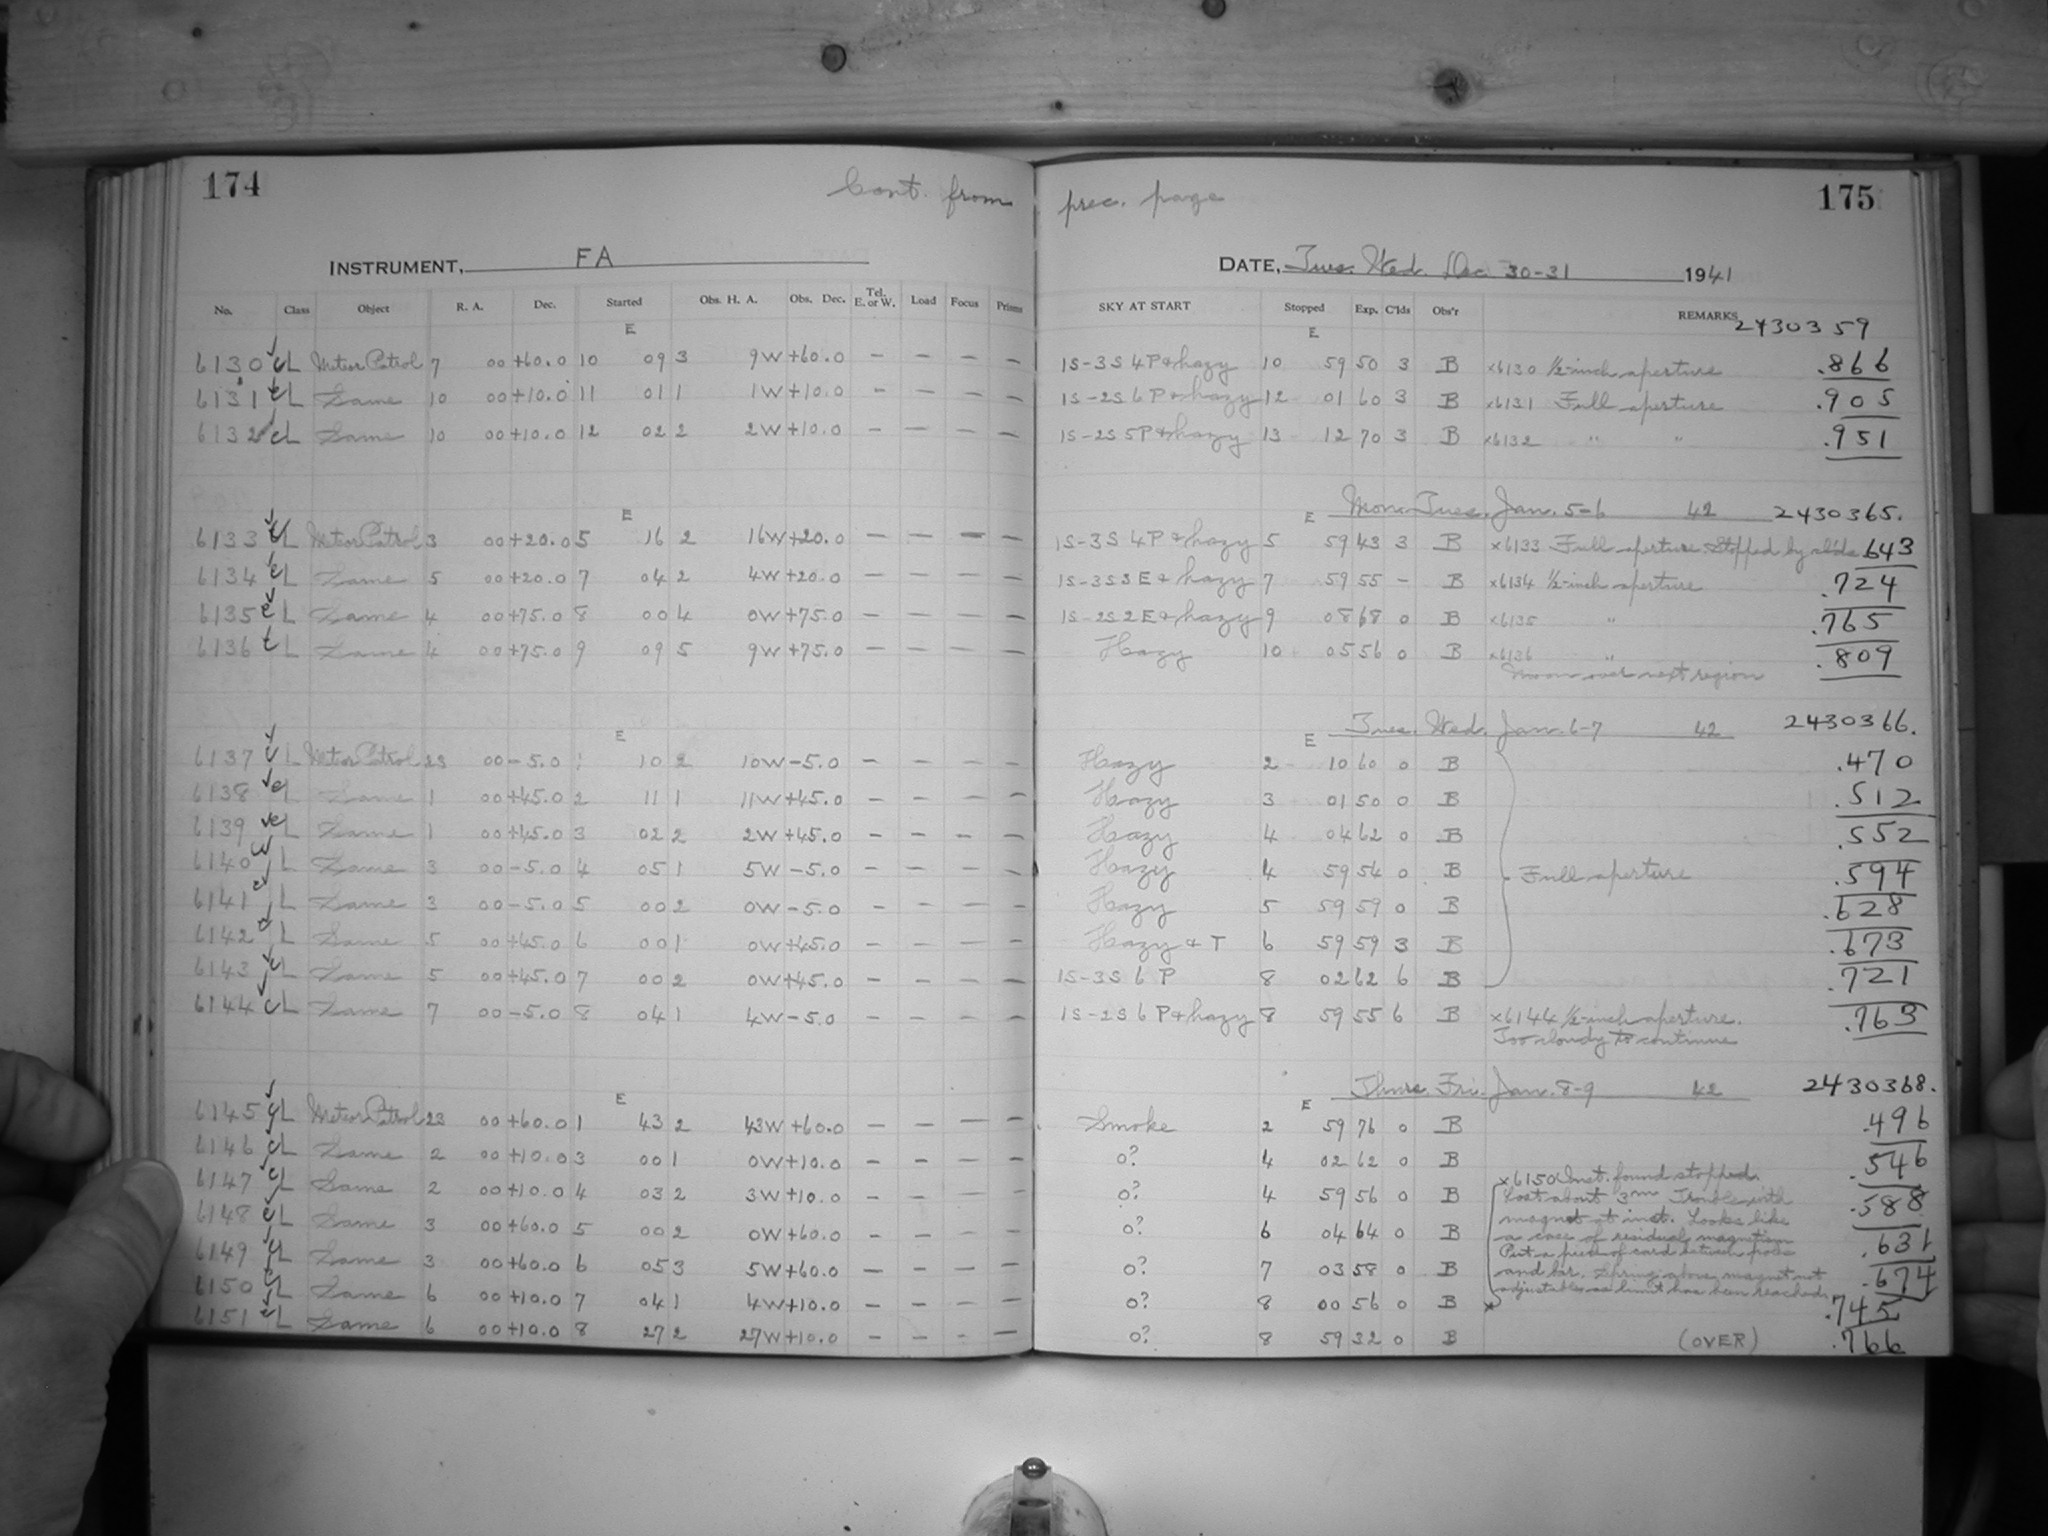 174 Cont. from prec. page 175
INSTRUMENT, FA DATE, Tues. Wed. Dec 30-31 1941
No. Class Object R. A. Dec. Started Obs. H. A. Obs. Dec. Tel. E. or W. Load Focus Prisms SKY AT START Stopped Exp. C'lds Obs'r REMARKS
E E 2430359
6130 cL Meteor Patrol 7 00 +60.0 10 09 3 9W +60.0 – – – – 1S-3S 4P & hazy 10 59 50 3 B x6130 ½-inch aperture .866
6131 cL Same 10 00 +10.0 11 01 1 1W +10.0 – – – – 1S-2S 6P & hazy 12 01 60 3 B x6131 Full aperture .905
6132 cL Same 10 00 +10.0 12 02 2 2W +10.0 – – – – 1S-2S 5P & hazy 13 12 70 3 B x6132 " " .951
E E Mon. Tues. Jan. 5-6 42 2430365.
6133 cL Meteor Patrol 3 00 +20.0 5 16 2 16W +20.0 – – – – 1S-3S 4P & hazy 5 59 43 3 B x6133 Full aperture Stopped by clds .643
6134 cL Same 5 00 +20.0 7 04 2 4W +20.0 – – – – 1S-3S 3E & hazy 7 59 55 – B x6134 ½-inch aperture .724
6135 cL Same 4 00 +75.0 8 00 4 0W +75.0 – – – – 1S-2S 2E & hazy 9 08 68 0 B x6135 " .765
6136 L Same 4 00 +75.0 9 09 5 9W +75.0 – – – – Hazy 10 05 56 0 B x6136 " .809
Moon over next region
E E Tues. Wed. Jan. 6-7 42 2430366.
6137 L Meteor Patrol 23 00 -5.0 1 10 2 10W -5.0 – – – – Hazy 2 10 60 0 B .470
6138 cL Same 1 00 +45.0 2 11 1 11W +45.0 – – – – Hazy 3 01 50 0 B .512
6139 cL Same 1 00 +45.0 3 02 2 2W +45.0 – – – – Hazy 4 04 62 0 B .552
6140 L Same 3 00 -5.0 4 05 1 5W -5.0 – – – – Hazy 4 59 54 0 B Full aperture .594
6141 L Same 3 00 -5.0 5 00 2 0W -5.0 – – – – Hazy 5 59 59 0 B .628
6142 L Same 5 00 +45.0 6 00 1 0W +45.0 – – – – Hazy & T 6 59 59 3 B .673
6143 cL Same 5 00 +45.0 7 00 2 0W +45.0 – – – – 1S-3S 6P 8 02 62 6 B .721
6144 cL Same 7 00 -5.0 8 04 1 4W -5.0 – – – – 1S-2S 6P & hazy 8 59 55 6 B x6144 ½-inch aperture. .763
Too cloudy to continue
E E Thurs. Fri. Jan. 8-9 42 2430368.
6145 cL Meteor Patrol 23 00 +60.0 1 43 2 43W +60.0 – – – – Smoke 2 59 76 0 B .496
6146 cL Same 2 00 +10.0 3 00 1 0W +10.0 – – – – 0? 4 02 62 0 B .546
6147 cL Same 2 00 +10.0 4 03 2 3W +10.0 – – – – 0? 4 59 56 0 B .588
6148 cL Same 3 00 +60.0 5 00 2 0W +60.0 – – – – 0? 6 04 64 0 B .631
6149 cL Same 3 00 +60.0 6 05 3 5W +60.0 – – – – 0? 7 03 58 0 B .674
6150 cL Same 6 00 +10.0 7 04 1 4W +10.0 – – – – 0? 8 00 56 0 B x .745
6151 cL Same 6 00 +10.0 8 27 2 27W +10.0 – – – – 0? 8 59 32 0 B (OVER) .766
x6150 Inst. found stopped.
Lost about 3m Trouble with
magnet at inst. Looks like
a case of residual magnetism
Put a piece of card between poles
and bar. Spring above magnet not
adjustable as limit has been reached.